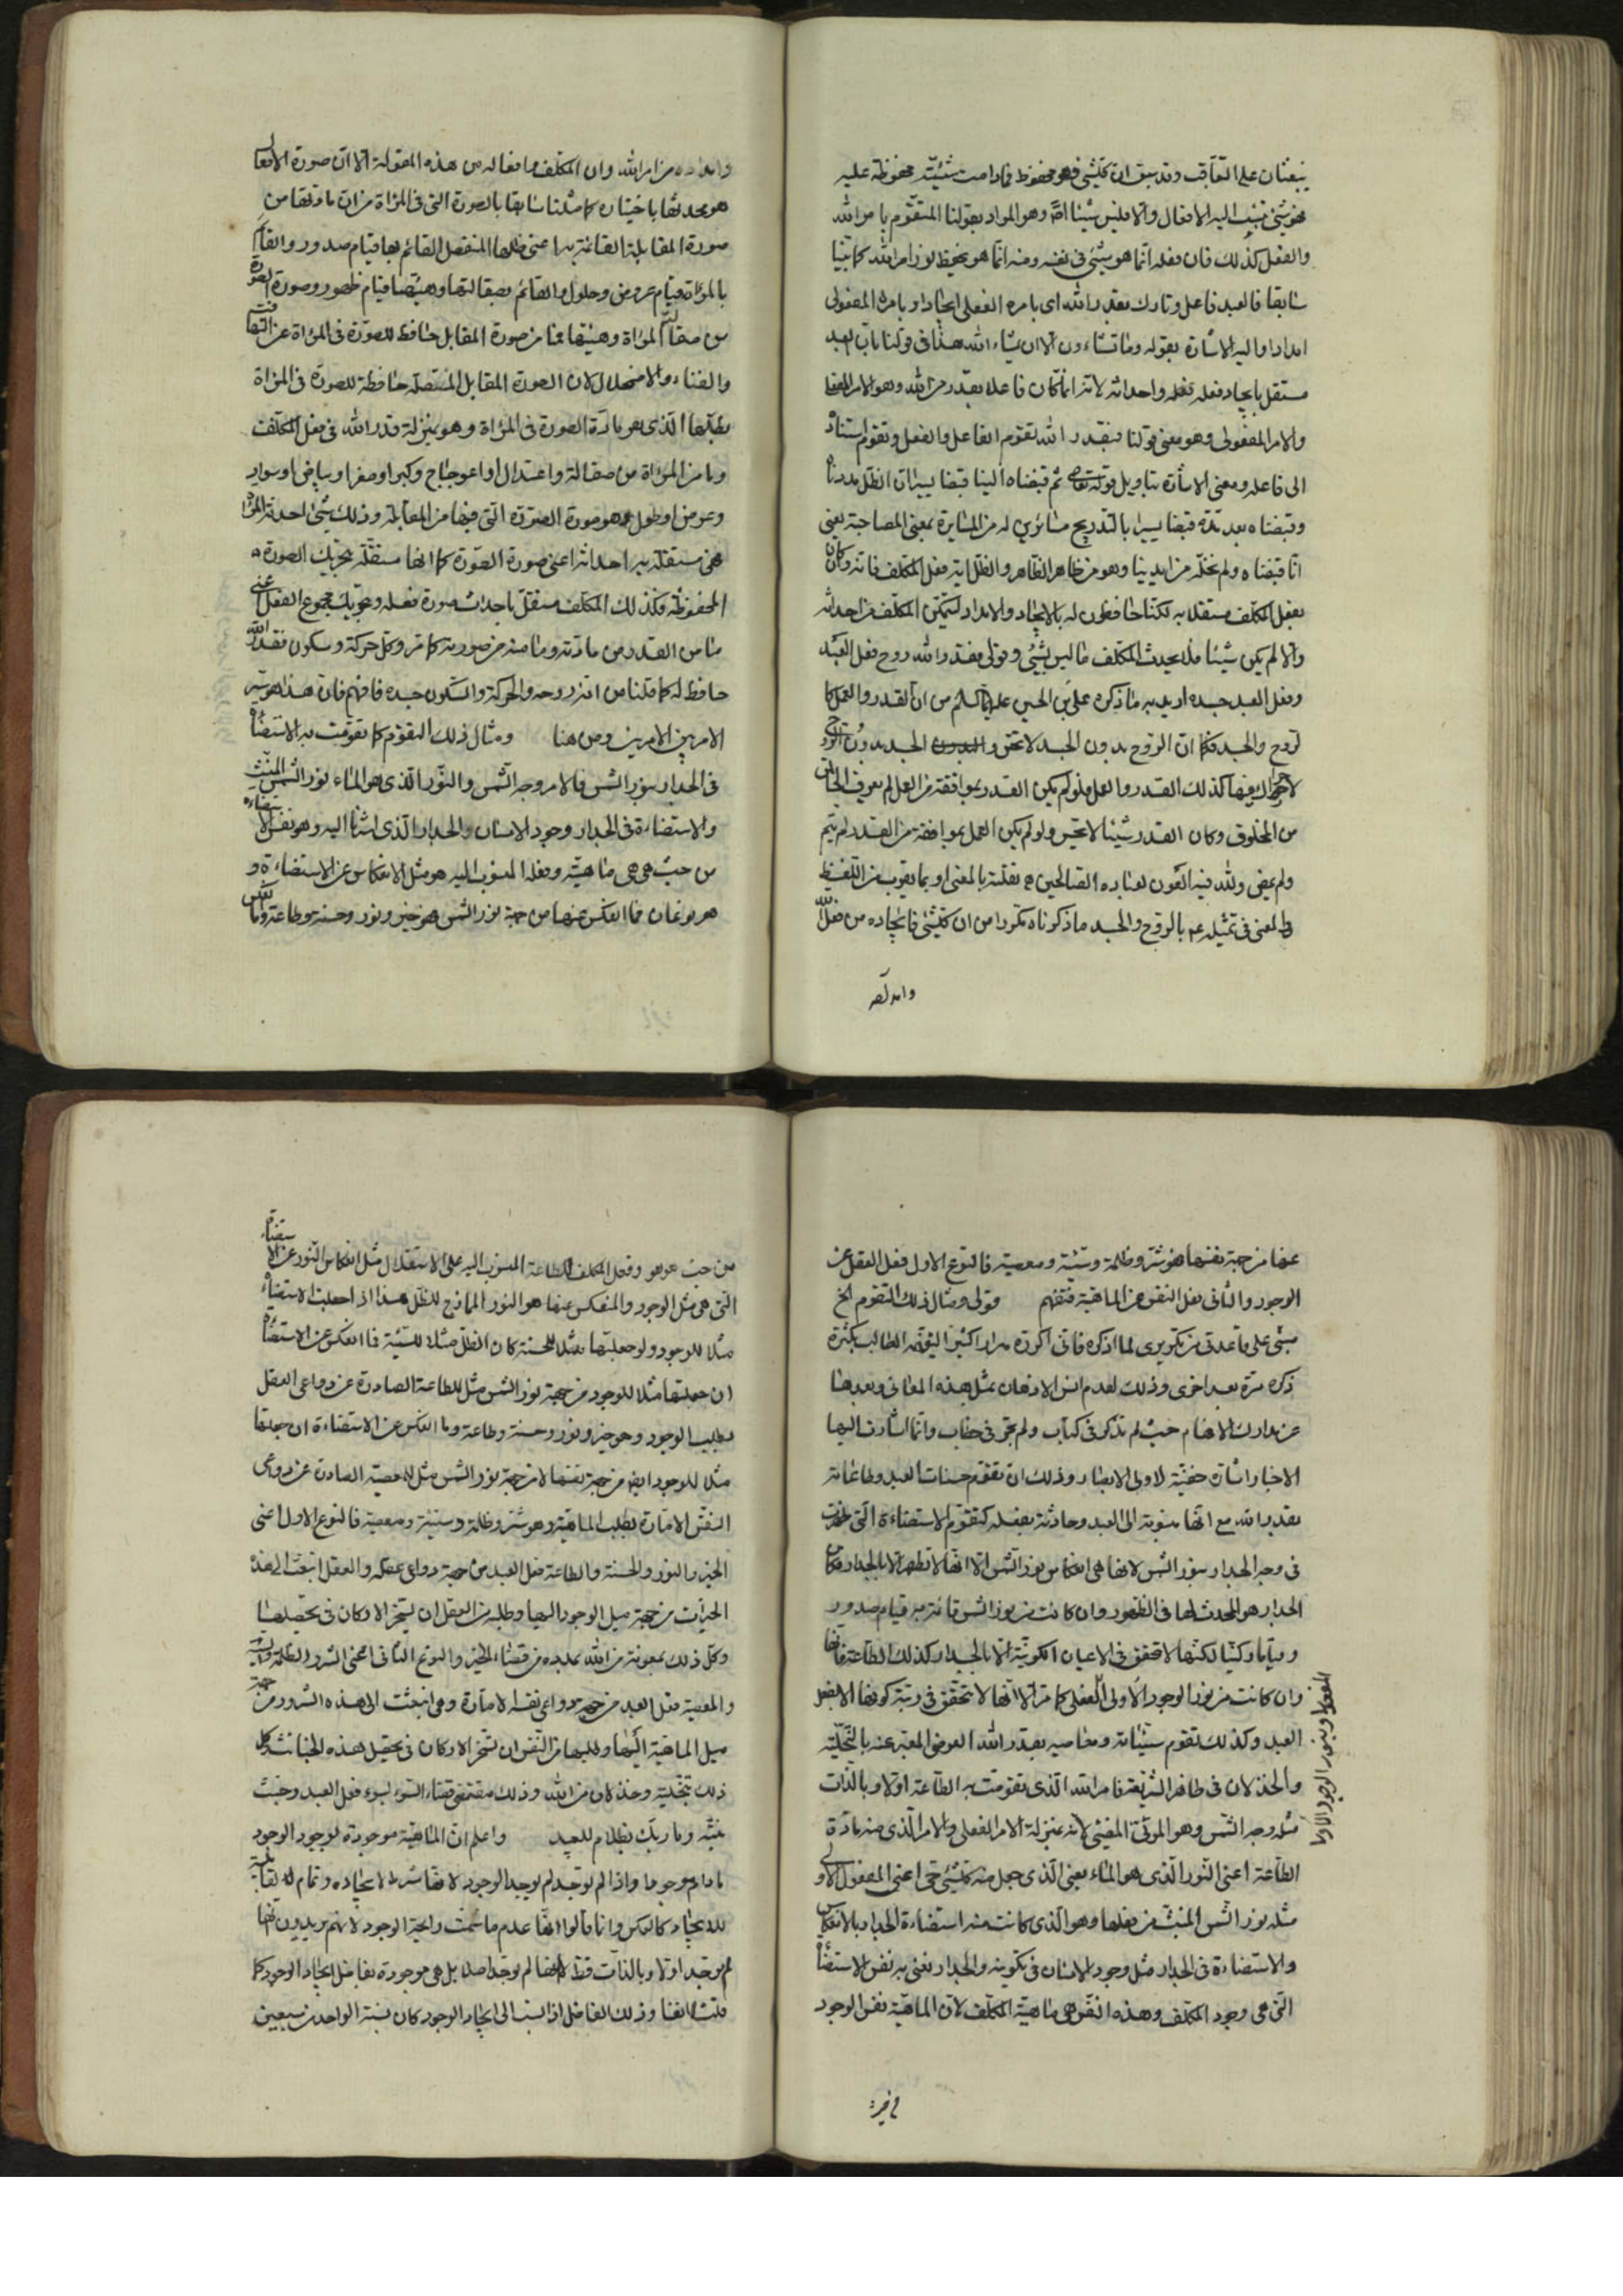 ينبعثان على التعاقب وقد سبق ان كلشئ فهو محفوظ فما دامت شيئيّته محفوظة عليه
فهو شئ تنسب اليه الافعال والا فليس شيئا اصلا وهو المراد بقولنا المتقوّم بامر الله
والفعل كذلك فان فعله انّما هو شئ فى نفسه ومنه انّما هو بحفظه بنور امر الله كما بيّنا
سابقا فالعبد فاعل وتارك بقدر الله اى بامره الفعلى ايجادا وبامره المفعولى
امدادا واليه الاشارة بقوله وما تشاءون الا ان يشاء الله هذا فى قولنا بانّ العبد
مستقل بايجاد فعله بفعله واحداثه لانّه انّما كان فاعلا بقدر من الله وهو الامر الفعلى
والامر المفعولى وهو معنى قولنا فبقدر الله تقوّم الفاعل والفعل وتقوّم استناده
الى فاعله ومعنى الاشارة بتاويل قوله تعالى ثم قبضناه الينا قبضا يسيرا ان الظلّ مددناه
وقبضناه بعد مدّه قبضا يسيرا بالتدريج مسايرين له من المسايرة بمعنى المصاحبة يعنى
انّا قبضناه ولم نخلّه من ايدينا وهو من ظاهر الظاهر والظلّ اية فعل المكلف فانه وكان
بفعل المكلّف مستقلا به لكنّا حافظون له بالايجاد والامداد لتمكّن المكلّف من احداثه
والا لم يكن شيئا فلا يحدث المكلّف ما ليس بشئ وقولى فقدر الله روح فعل العبد
وفعل العبد جسده اريد به ما ذكره علىّ بن الحسين عليهما السلام من ان القدر والعمل كا
لروح والجسد فكما ان الروح بدون الجسد لا تحسّ والجسد بدون الروح
لا حراك فيها كذلك القدر والعمل فلو لم يكن القدر بموافقة من العمل لم يعرف الخالق
من المخلوق وكان القدر شيئا لا يحسّ ولو لم يكن العمل بموافقة من القدر لم يتم
ولم يمض ولله فيه العون لعباده الصالحين ه نقلته بالمعنى او بما يقرب من اللفظ
والمعنى فى تمثيله ع بالروح والجسد ما ذكرناه مكررا من ان كلشئ فايجاده من فعل الله
وامداده
وامداده من امر الله وان المكلّف وافعاله من هذه المقولة الا ان صورة الافعال
هو يحدثها باختياره كما مثّلنا سابقا بالصورة التى فى المرآة من ان مادّتها من
صورة المقابلة القائمة به اعنى ظلّها المنفصل القائم بها قيام صدور والقائم
بالمرآة قيام عروض وحلول والقائم بصقالتها وهيئتها قيام ظهور وصورة الصورة
من صقالة المرآة وهيئتها فما من صورة المقابل حافظ للصورة فى المرآة عن التهافت
والفناء والاضمحلال لان الصورة المقابل المتّصلة حافظة للصورة فى المرآة
بظلّها الّذى هو مادّة الصورة فى المرآة وهو بمنزلة قدر الله فى فعل المكلّف
وما من المرآة من صقالة واعتدال او اعوجاج وكبر او صغر او بياض او سواد
وعرض او طول هو صورة الصورة الّتى فيها من المقابلة وذلك شئ احدثه المرآة
فهى مستقلّة به احداثه اعنى صورة الصورة كما انها مستقلّة بتحريك الصورة
المحفوظة فكذلك المكلّف مستقلّ باحداث صورة فعله وبتحريك مجموع الفعل اعنى
ما من القدر من مادّته وما منه من صورته كما مرّ وكل حركة وسكون فقدر الله
حافظ له كما قلنا من انّه روحه والحركة والسكون جسده فافهم فانّ هذا هو سرّ
الامر بين الامرين ومن هنا ومثال ذلك التقوّم كما تقوّمت به الاستضاءة
فى الجدار بنور الشمس فالامر وجه الشمس والنّور الّذى هو الماء نور الشمس المنبث
والاستضاءة فى الجدار وجود الانسان والجدار الّذى اشرنا اليه وهو نفس الاستضاءة
من حيث هى هى ماهيّته وفعله المنسوب اليه هو مثل الانعكاس عن الاستضاءة و
هو نوعان فما انعكس عنها من جهة نور الشمس فهو خير ونور وحسنة وطاعة وما انعكس
عنها من جهة نفسها فهو شرّ وظلمة وسيّئة ومعصية فالنوع الاول فعل العقل عن
الوجود والثانى فعل النفس عن الماهية فتفهّم وقولى ومثال ذلك التقوم الخ
مبنى على قاعدتى من تكريرى لما اذكره فانى اكرره مرارا كثيرا ليفهمه الطالب بكثرة
ذكره مرّة بعد اخرى وذلك لعدم انس الاذهان بمثل هذه المعانى وبعدها
عن مدارك الافهام حيث لم تذكر فى كتاب ولم تجر فى خطاب وانّما اشارت اليها
الاخبار اشارة خفيّة لاولى الابصار وذلك انّ تقوّم حسنات العبد وطاعاته
بقدر الله مع انّها منسوبة الى العبد وحادثة بفعله كتقوّم الاستضاءة الّتى ظهرت
فى وجه الجدار بنور الشمس لانها هى انعكاس نور الشمس الا انّها لا تظهر الا بالجدار فكان
الجدار هو المحدث لها فى الظهور وان كانت من نور الشمس قائمة به قيام صدور
وقياما ركنيّا لكنّها لا تتحقق فى الاعيان الكونيّة الا بالجدار كذلك الطاعة فانها
وان كانت من نور الوجود الاولى الفعلى كما مرّ الا انّها لا تتحقق فى رتبة كونها الا بفعل
العبد وكذلك تقوم سيّئاته ومعاصيه بقدر الله العرضى المعبّر عنه بالتخلية
والخذلان فى ظاهر الشريعة فامر الله الّذى تقوّمت به الطّاعة اولا وبالذّات
مثله وجه الشمس وهو المرئىّ المضئ لانه بمنزلة الامر الفعلى والامر الّذى منه مادّة
الطّاعة اعنى النّور الّذى هو الماء يعنى الّذى جعل منه كلشئ حى اعنى المفعول الاولى
مثله نور الشمس المنبثّ من فعلها وهو الّذى كانت منه استضاءة الجدار بالانعكاس
والاستضاءة فى الجدار مثل وجود الانسان فى تكوينه والجدار نعنى به نفس الاستضاءة
الّتى هى وجود المكلّف وهذه النفس هى ماهيّة المكلّف لانّ الماهيّة نفس الوجود
من حيث هو هو وفعل المكلّف للطاعة المنسوب اليه على الاستقلال مثل انعكاس النّور عن الاستضاءة
الّتى هى مثل الوجود والمنعكس عنها هو النور المازج للظلّ هذا اذا جعلت الاستضاءة
مثلا للوجود ولو جعلتها مثلا للحسنة كان الظلّ مثلا للسيّئة فما انعكس عن الاستضاءة
ان جعلتها مثلا للوجود من جهة نور الشمس مثل للطاعة الصادرة عن دواعى العقل
بطلب الوجود وهو خير ونور وحسنة وطاعة وما انعكس عن الاستضاءة ان جعلتها
مثلا للوجود ايضا من جهة نفسها لا من جهة نور الشمس مثل للمعصية الصادرة عن دواعى
النفس الامّارة بطلب الماهيّة وهو شرّ وظلمة وسيّئة ومعصية فالنوع الاول اعنى
الخير والنور والحسنة والطاعة فعل العبد من جهة دواعى عقله والعقل انبعث الى هذه
الخيرات من جهة ميل الوجود اليها وطلبه من العقل ان يسخّر الاركان فى تحصيلها
وكلّ ذلك بمعونة من الله لعبده من قضاء الخير والنوع الثانى اعنى الشر والظلمة والسيئة
والمعصية فعل العبد من جهة دواعى نفسه الامّارة وهى انبعثت الى هذه الشرور من جهة
ميل الماهيّة اليها وطلبها من النفس ان تسخّر الاركان فى تحصيل هذه الخبائث وكل
ذلك بتخلية وخذلان من الله وذلك مقتضى قضاء السوء لسوء فعل العبد وخبث
نيّته وما ربّك بظلّام للعبيد واعلم انّ الماهيّة موجودة بوجود الوجود
ما دام موجودا واذا لم توجد لم يوجد الوجود لانها شرط لايجاده وتمام له لقابليّة
للايجاد كالعكس وانما قالوا انّها عدم ما شمّت رائحة الوجود لانهم يريدون انّها
لم توجد اولا وبالذّات فقط لا انها لم توجد اصلا بل هى موجودة بفاضل ايجاد الوجود كما
قلت انفا وذلك الفاضل اذا نسب الى ايجاد الوجود كان نسبة الواحد من سبعين